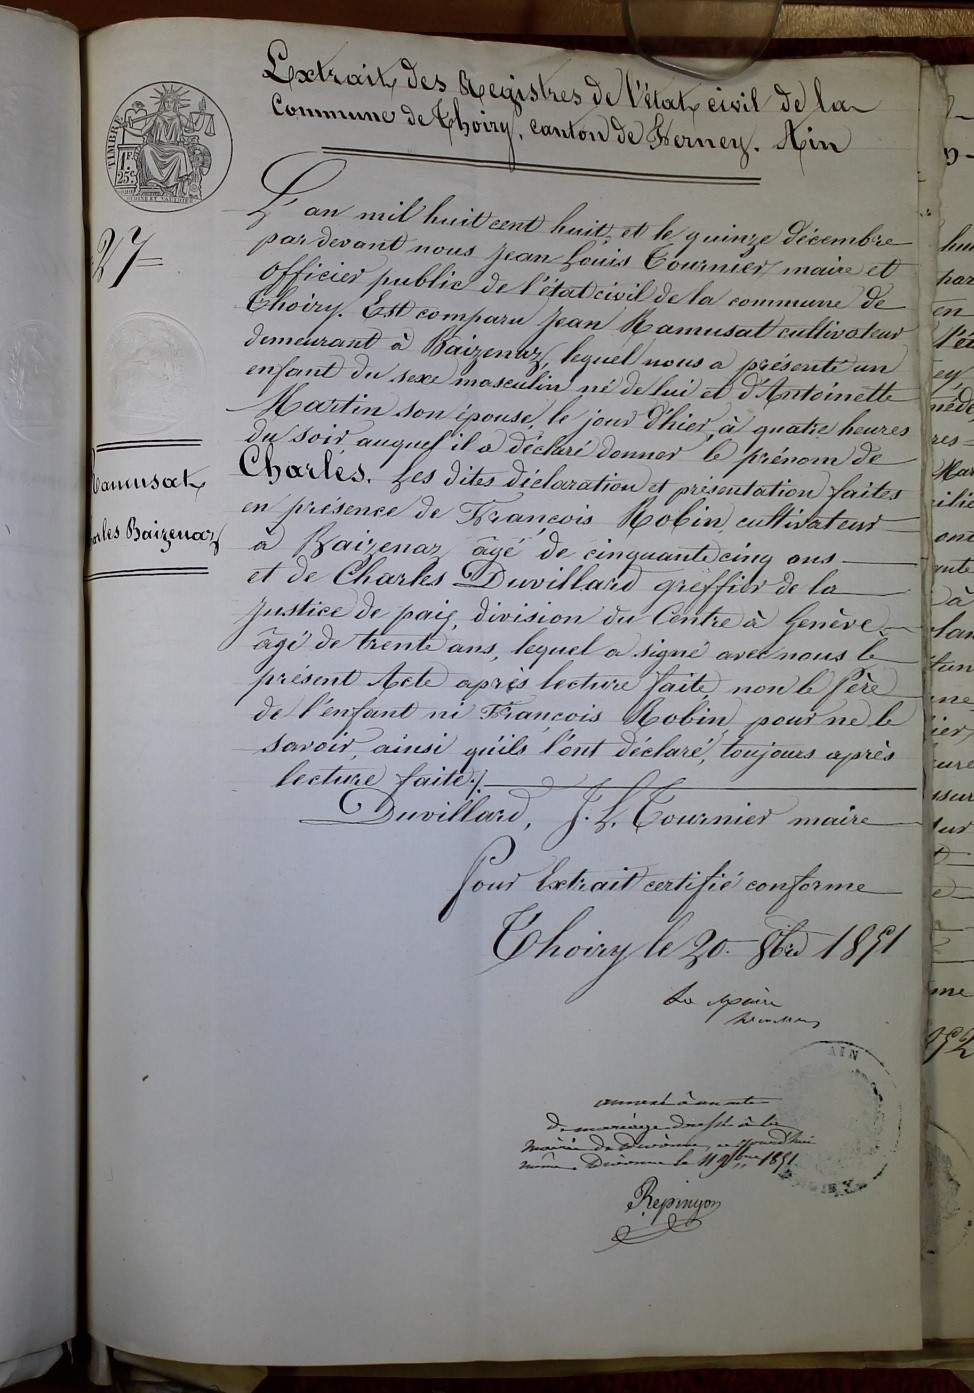 Extrait des Registres de l'état civil de la
Commune de Thoiry, canton de Ferney. Ain
TIMBRE
1 F.
25 c
27
L'an mil huit cent huit, et le quinze décembre
par devant nous Jean Louis Tournier maire et
officier public de l'état civil de la commune de
Thoiry. Est comparu Jean Ramusat cultivateur
demeurant à Baizenaz, lequel nous a présenté un
enfant du sexe masculin né de lui et d'Antoinette
Martin son épouse, le jour d'hier, à quatre heures
du soir auquel il a déclaré donner le prénom de
Charles. Les dites déclaration et présentation faites
en présence de François Robin cultivateur
à Baizenaz âgé de cinquante cinq ans
et de Charles Duvillard greffier de la
Justice de paix, division du Centre à Genève
âgé de trente ans, lequel a signé avec nous le
présent Acte après lecture faite, non le Père
de l'enfant ni François Robin pour ne le
savoir, ainsi qu'ils l'ont déclaré, toujours après
lecture faite./.
Duvillard, J. L. Tournier maire
Ramusat
Charles Baizenaz
Pour Extrait certifié conforme
Thoiry le 20 8bre 1851
Le Maire
AIN
annexé à un acte
de mariage dressé à la
mairie de Divonne, ce jourd'hui
même. Divonne le 11 9bre 1851
Repingon